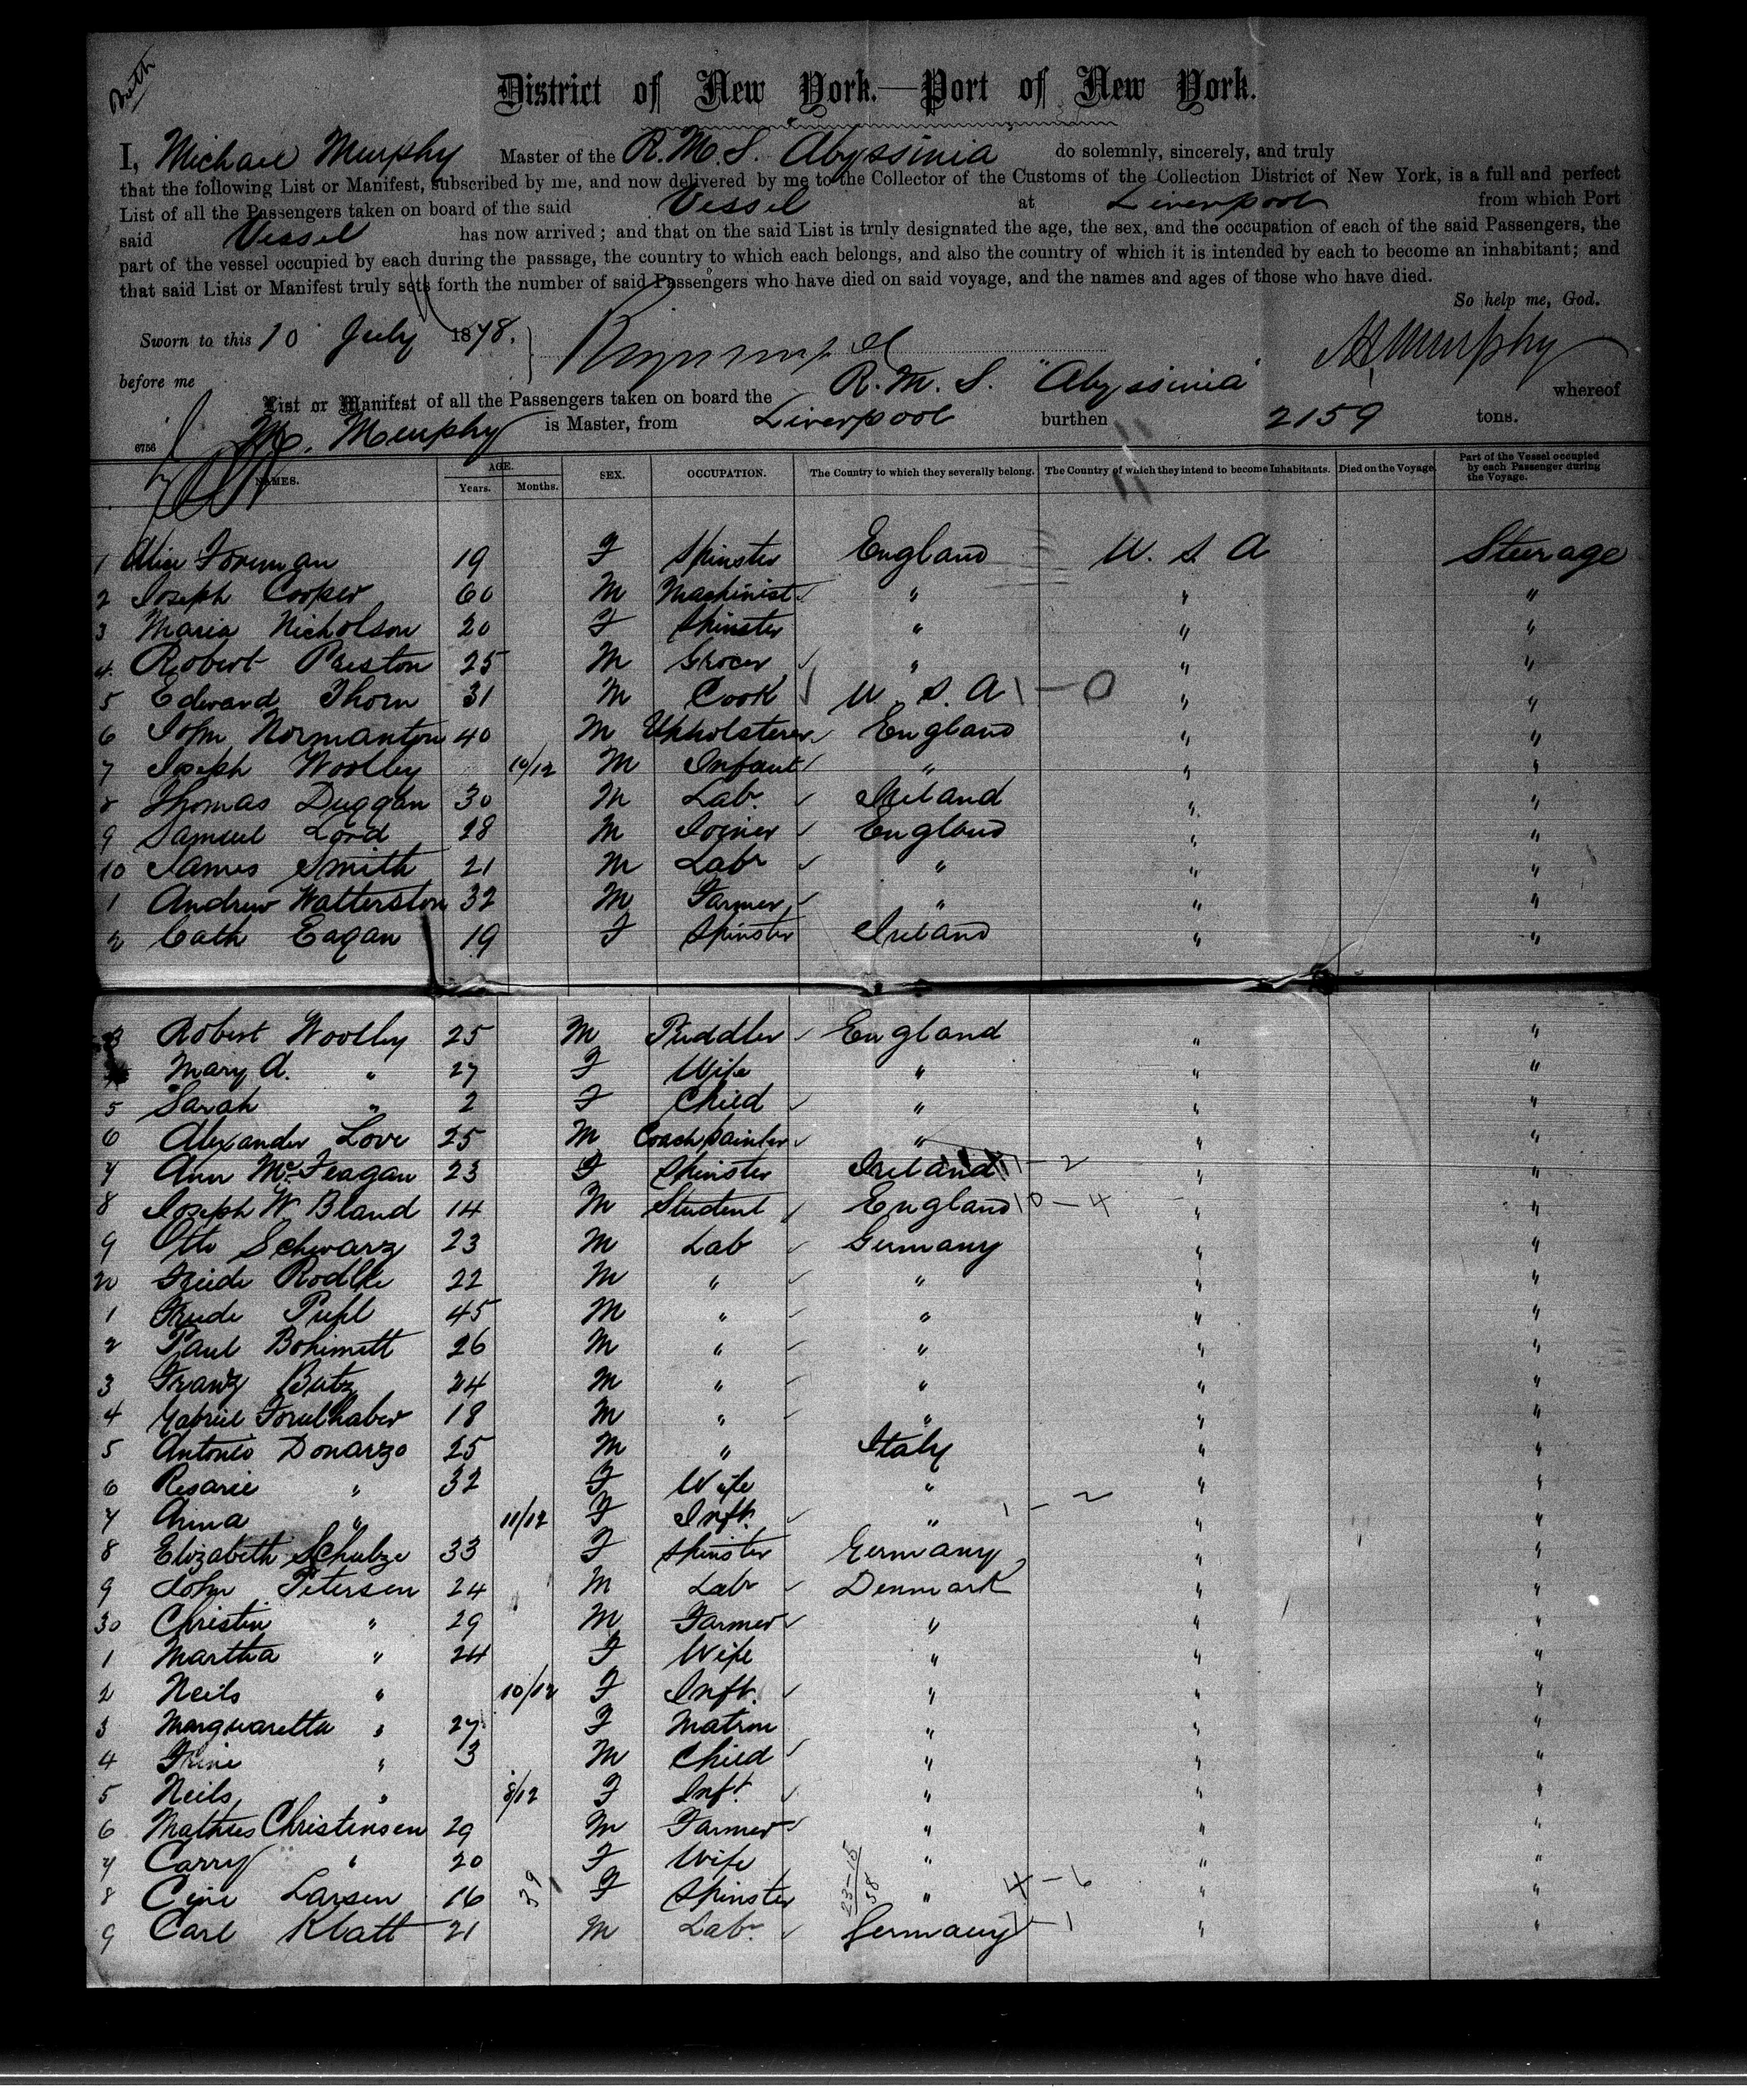 District of New York.—Port of New York.
I, Michael Murphy Master of the R.M.S. Abyssinia do solemnly, sincerely, and truly
that the following List or Manifest, subscribed by me, and now delivered by me to the Collector of the Customs of the Collection District of New York, is a full and perfect
List of all the Passengers taken on board of the said Vessel at Liverpool from which Port
said Vessel has now arrived; and that on the said List is truly designated the age, the sex, and the occupation of each of the said Passengers, the
part of the vessel occupied by each during the passage, the country to which each belongs, and also the country of which it is intended by each to become an inhabitant; and
that said List or Manifest truly sets forth the number of said Passengers who have died on said voyage, and the names and ages of those who have died.
So help me, God.
Sworn to this 10 July 1878. M. Murphy
before me
List or Manifest of all the Passengers taken on board the R.M.S. "Abyssinia" whereof
M. Murphy is Master, from Liverpool burthen 2159 tons.
6756
NAMES. AGE. Years. Months. SEX. OCCUPATION. The Country to which they severally belong. The Country of which they intend to become Inhabitants. Died on the Voyage. Part of the Vessel occupied by each Passenger during the Voyage.
1 Alice Foreman 19 F Spinster England U. S. A Steerage
2 Joseph Cooper 60 M Machinist " " "
3 Maria Nicholson 20 F Spinster " " "
4. Robert Preston 25 M Grocer " " "
5 Edward Thorn 31 M Cook U. S. A 1 – 0 " "
6 John Normanton 40 M Upholsterer England " "
7 Joseph Woolley 10/12 M Infant " " "
8 Thomas Duggan 30 M Lab. Ireland " "
9 Samuel Lord 28 M Joiner England " "
10 James Smith 21 M Labr " " "
1 Andrew Watterston 32 M Farmer " " "
2 Cath Eagan 19 F Spinster Ireland " "
3 Robert Woolley 25 M Peddler England " "
Mary A. " 27 F Wife " " "
5 Sarah " 2 F Child " " "
6 Alexander Love 25 M Coachpainter " " "
7 Ann McFeagan 23 F Spinster Ireland – 2 " "
8 Joseph W Bland 14 M Student England 10 – 4 " "
9 Otto Schwarz 23 M Lab Germany " "
20 Friede 22 M " " " "
1 45 M " " " "
2 Paul 26 M " " " "
3 Franz Butz 24 M " " " "
4 Gabriel 18 M " " " "
5 Antonio Donarzo 25 M " Italy " "
6 Rosarie " 32 F Wife " " "
7 Anna " 11/12 F Inft. " 1 – 2 " "
8 Elizabeth Schulze 33 F Spinster Germany " "
9 John Petersen 24 M Labr Denmark " "
30 Christin " 29 M Farmer " " "
1 Martha " 24 F Wife " " "
2 Neils " 10/12 F Inft. " " "
3 Marguaretta " 27 F Matron " " "
4 Trine " 3 M Child " " "
5 Neils " 8/12 F Inft. " " "
6 Mathies Christensen 29 M Farmer " " "
7 Carry " 20 F Wife " " "
8 Larsen 16 39 F Spinster 23–15 38 " 4 – 6 " "
9 Carl Klatt 21 M Labr. Germany – 1 " "